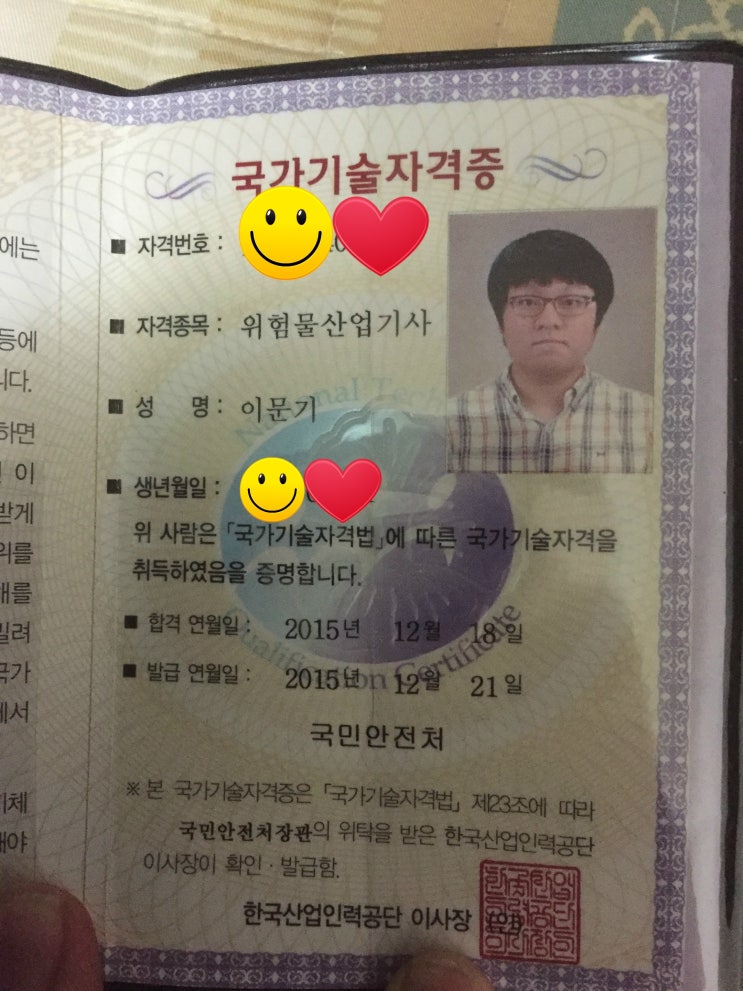 국가기술자격증
에는
■ 자격번호 :
■ 자격종목 : 위험물산업기사
등에
니다.
■ 성 명 : 이문기
하면
이
■ 생년월일 :
받게
위 사람은 「국가기술자격법」에 따른 국가기술자격을
위를
취득하였음을 증명합니다.
개를
■ 합격 연월일 : 2015년 12월 18일
밀려
■ 발급 연월일 : 2015년 12월 21일
국가
에서
National Tech
Qualification Certificate
국민안전처
※ 본 국가기술자격증은 「국가기술자격법」 제23조에 따라
국민안전처장관의 위탁을 받은 한국산업인력공단
해야
이사장이 확인·발급함.
한국산업인력공단 이사장